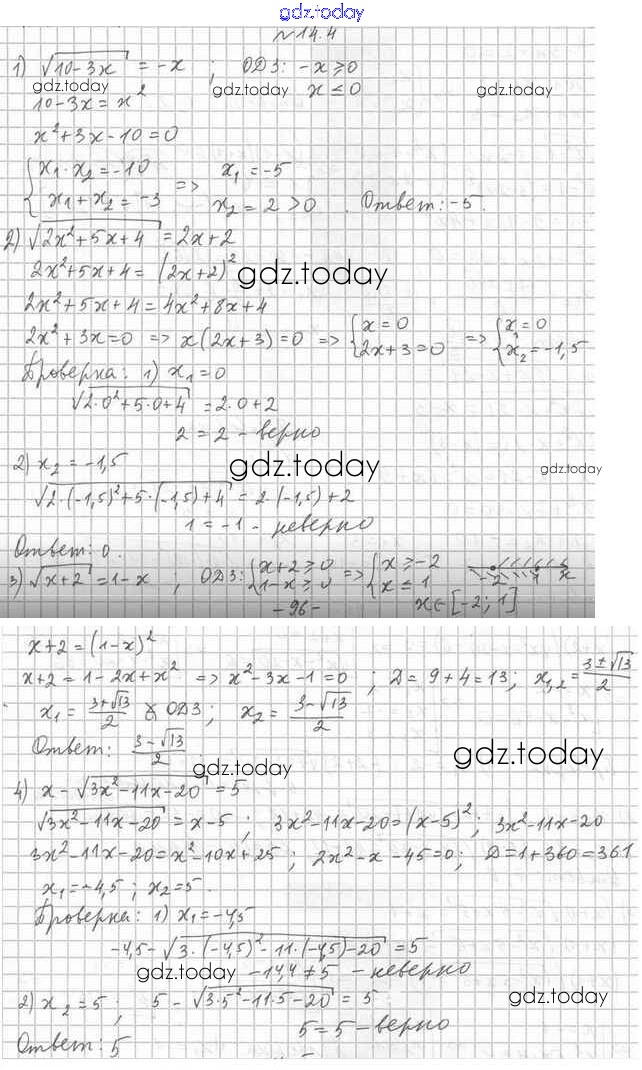 gdz.today
№14.4
1) √(10-3x) = -x ; ОДЗ: -x ≥ 0
gdz.today gdz.today x ≤ 0 gdz.today
10-3x = x²
x²+3x-10=0
{x₁·x₂=-10 => x₁=-5
{x₁+x₂=-3 x₂=2>0. Ответ: -5.
2) √(2x²+5x+4) = 2x+2
2x²+5x+4 = (2x+2)² gdz.today
2x²+5x+4 = 4x²+8x+4
2x²+3x=0 => x(2x+3)=0 => {x=0 => {x₁=0
{2x+3=0 {x₂=-1,5
Проверка: 1) x₁=0
√(2·0²+5·0+4) = 2·0+2
2=2 - верно
2) x₂=-1,5 gdz.today gdz.today
√(2·(-1,5)²+5·(-1,5)+4) = 2·(-1,5)+2
1=-1 - неверно
Ответ: 0.
3) √(x+2) = 1-x ; ОДЗ: {x+2≥0 => {x≥-2
{1-x≥0 {x≤1 -2 1 x
-96- x∈[-2; 1]
x+2=(1-x)²
x+2=1-2x+x² => x²-3x-1=0 ; D=9+4=13; x₁,₂=(3±√13)/2
x₁=(3+√13)/2 ∉ ОДЗ; x₂=(3-√13)/2
Ответ: (3-√13)/2. gdz.today gdz.today
4) x-√(3x²-11x-20) = 5
√(3x²-11x-20) = x-5 ; 3x²-11x-20=(x-5)²; 3x²-11x-20
3x²-11x-20=x²-10x+25 ; 2x²-x-45=0; D=1+360=361
x₁=-4,5 ; x₂=5.
Проверка: 1) x₁=-4,5
-4,5-√(3·(-4,5)²-11·(-4,5)-20) = 5
gdz.today -14,4≠5 - неверно
2) x₂=5 ; 5-√(3·5²-11·5-20) = 5 gdz.today
5=5 - верно
Ответ: 5